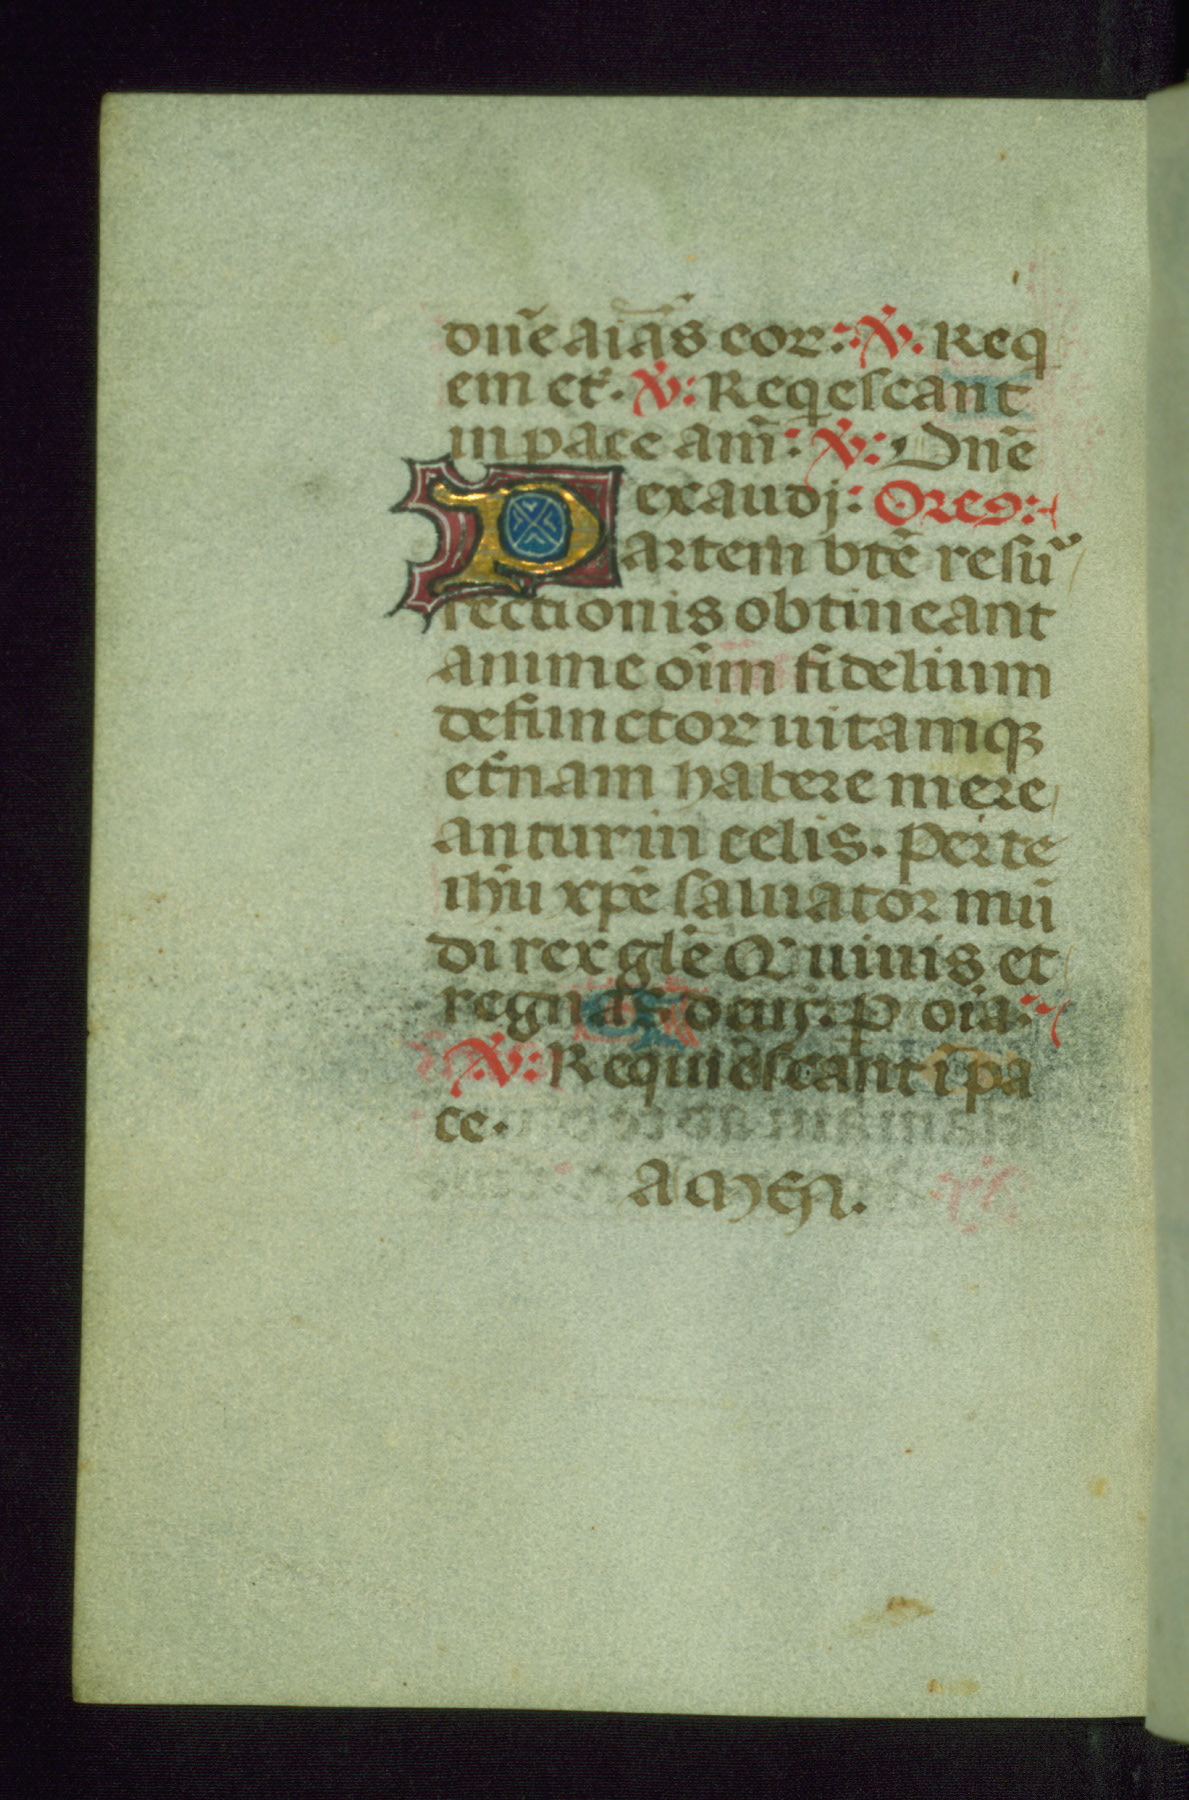 dn̄e aīas cor: ℣. Req
em et̄. ℣: Reqescant
in pace am̄: ℣: Dn̄e
exaudj: Oreꝰ:
Partem bt̄e resu᷑
rectionis obtineant
anime oīm fidelium
defunctoꝝ uitamqꝫ
et̄nam habere mere
antur in celis. Per te
ih̄u xp̄e saluator mū
di rex gl̄e Q̇ uiuis et
regnas. deus. ꝑ oīa.
℣: Requiescant ī pa
ce.
AMEN.